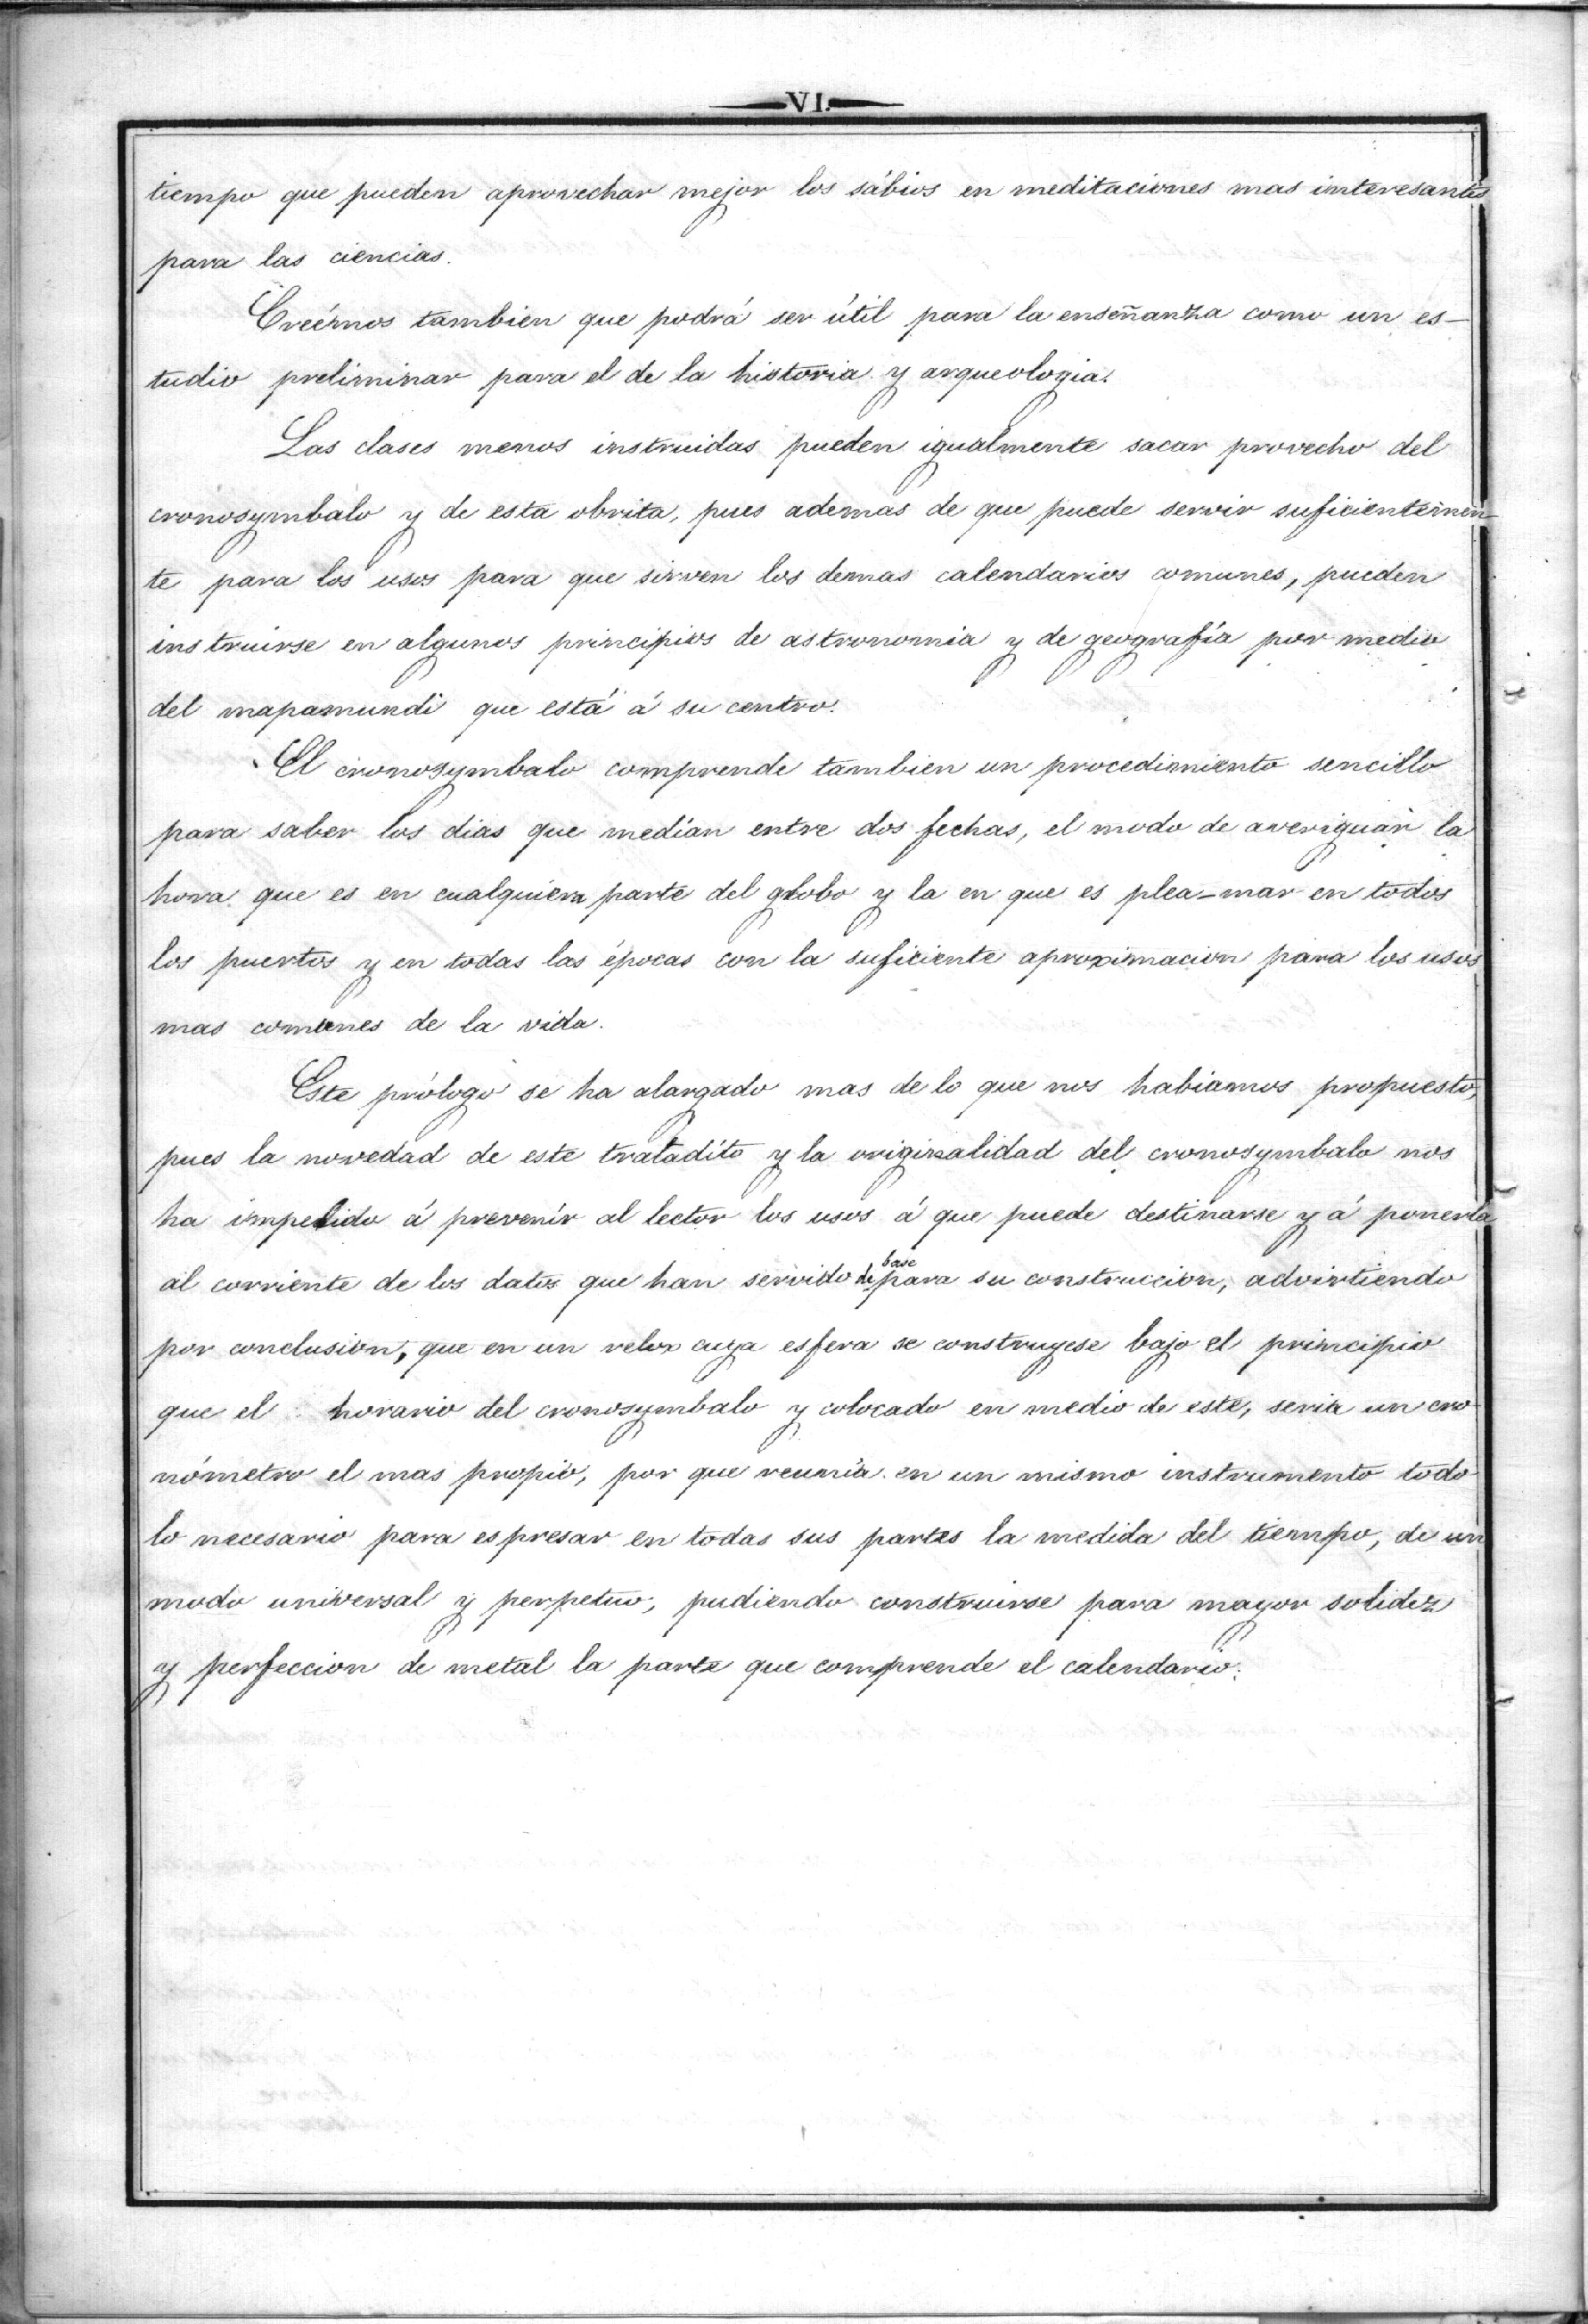 VI.
tiempo que pueden aprovechar mejor los sábios en meditaciones mas interesantes
para las ciencias.
Creémos tambien que podrá ser útil para la enseñanza como un es-
tudio preliminar para el de la historia y arqueologia.
Las clases menos instruidas pueden igualmente sacar provecho del
cronosymbalo y de esta obrita, pues ademas de que puede servir suficientemen-
te para los usos para que sirven los demas calendarios comunes, pueden
instruirse en algunos principios de astronomia y de geografía por medio
del mapamundi que está á su centro.
El cronosymbalo comprende tambien un procedimiento sencillo
para saber los dias que medían entre dos fechas, el modo de averiguar la
hora que es en cualquiera parte del globo y la en que es plea-mar en todos
los puertos y en todas las épocas con la suficiente aproximacion para los usos
mas comunes de la vida.
Este prólogo se ha alargado mas de lo que nos habiamos propuesto,
pues la novedad de este tratadito y la originalidad del cronosymbalo nos
ha impelido á prevenir al lector los usos á que puede destinarse y á ponerla
al corriente de los datos que han servido de base para su construccion, advirtiendo
por conclusion, que en un relox cuya esfera se construyese bajo el principio
que el horario del cronosymbalo y colocado en medio de este, seria un cro
nómetro el mas propio, por que reunía en un mismo instrumento todo
lo necesario para espresar en todas sus partes la medida del tiempo, de un
modo universal y perpetuo, pudiendo construirse para mayor solidez
y perfeccion de metal la parte que comprende el calendario.